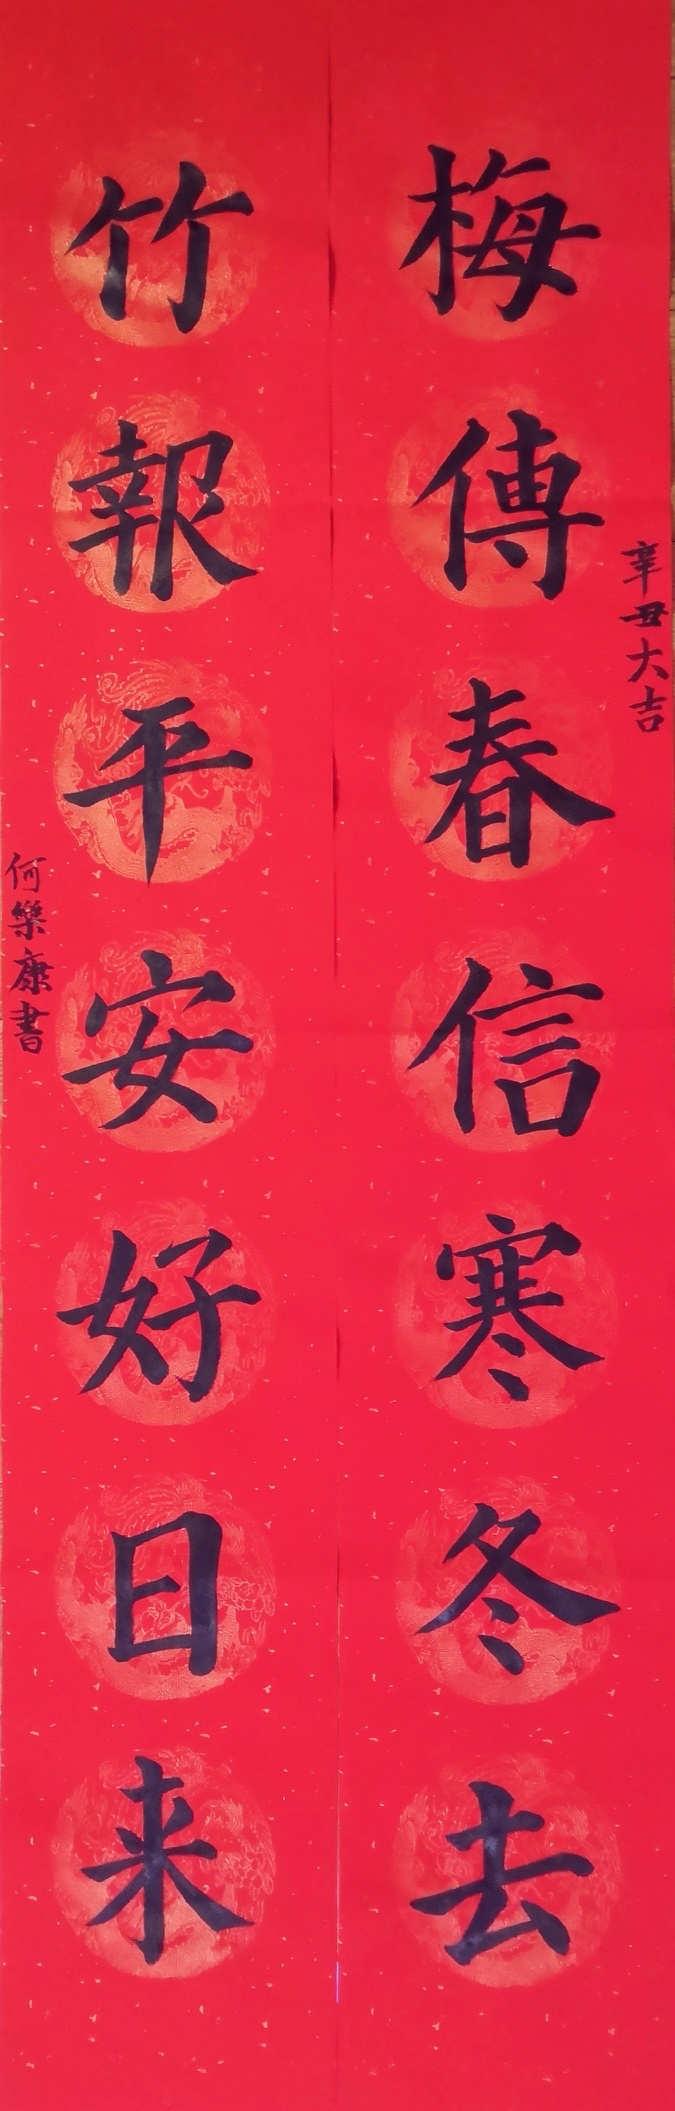 辛丑大吉
梅傳春信寒冬去
竹報平安好日来
何樂康書